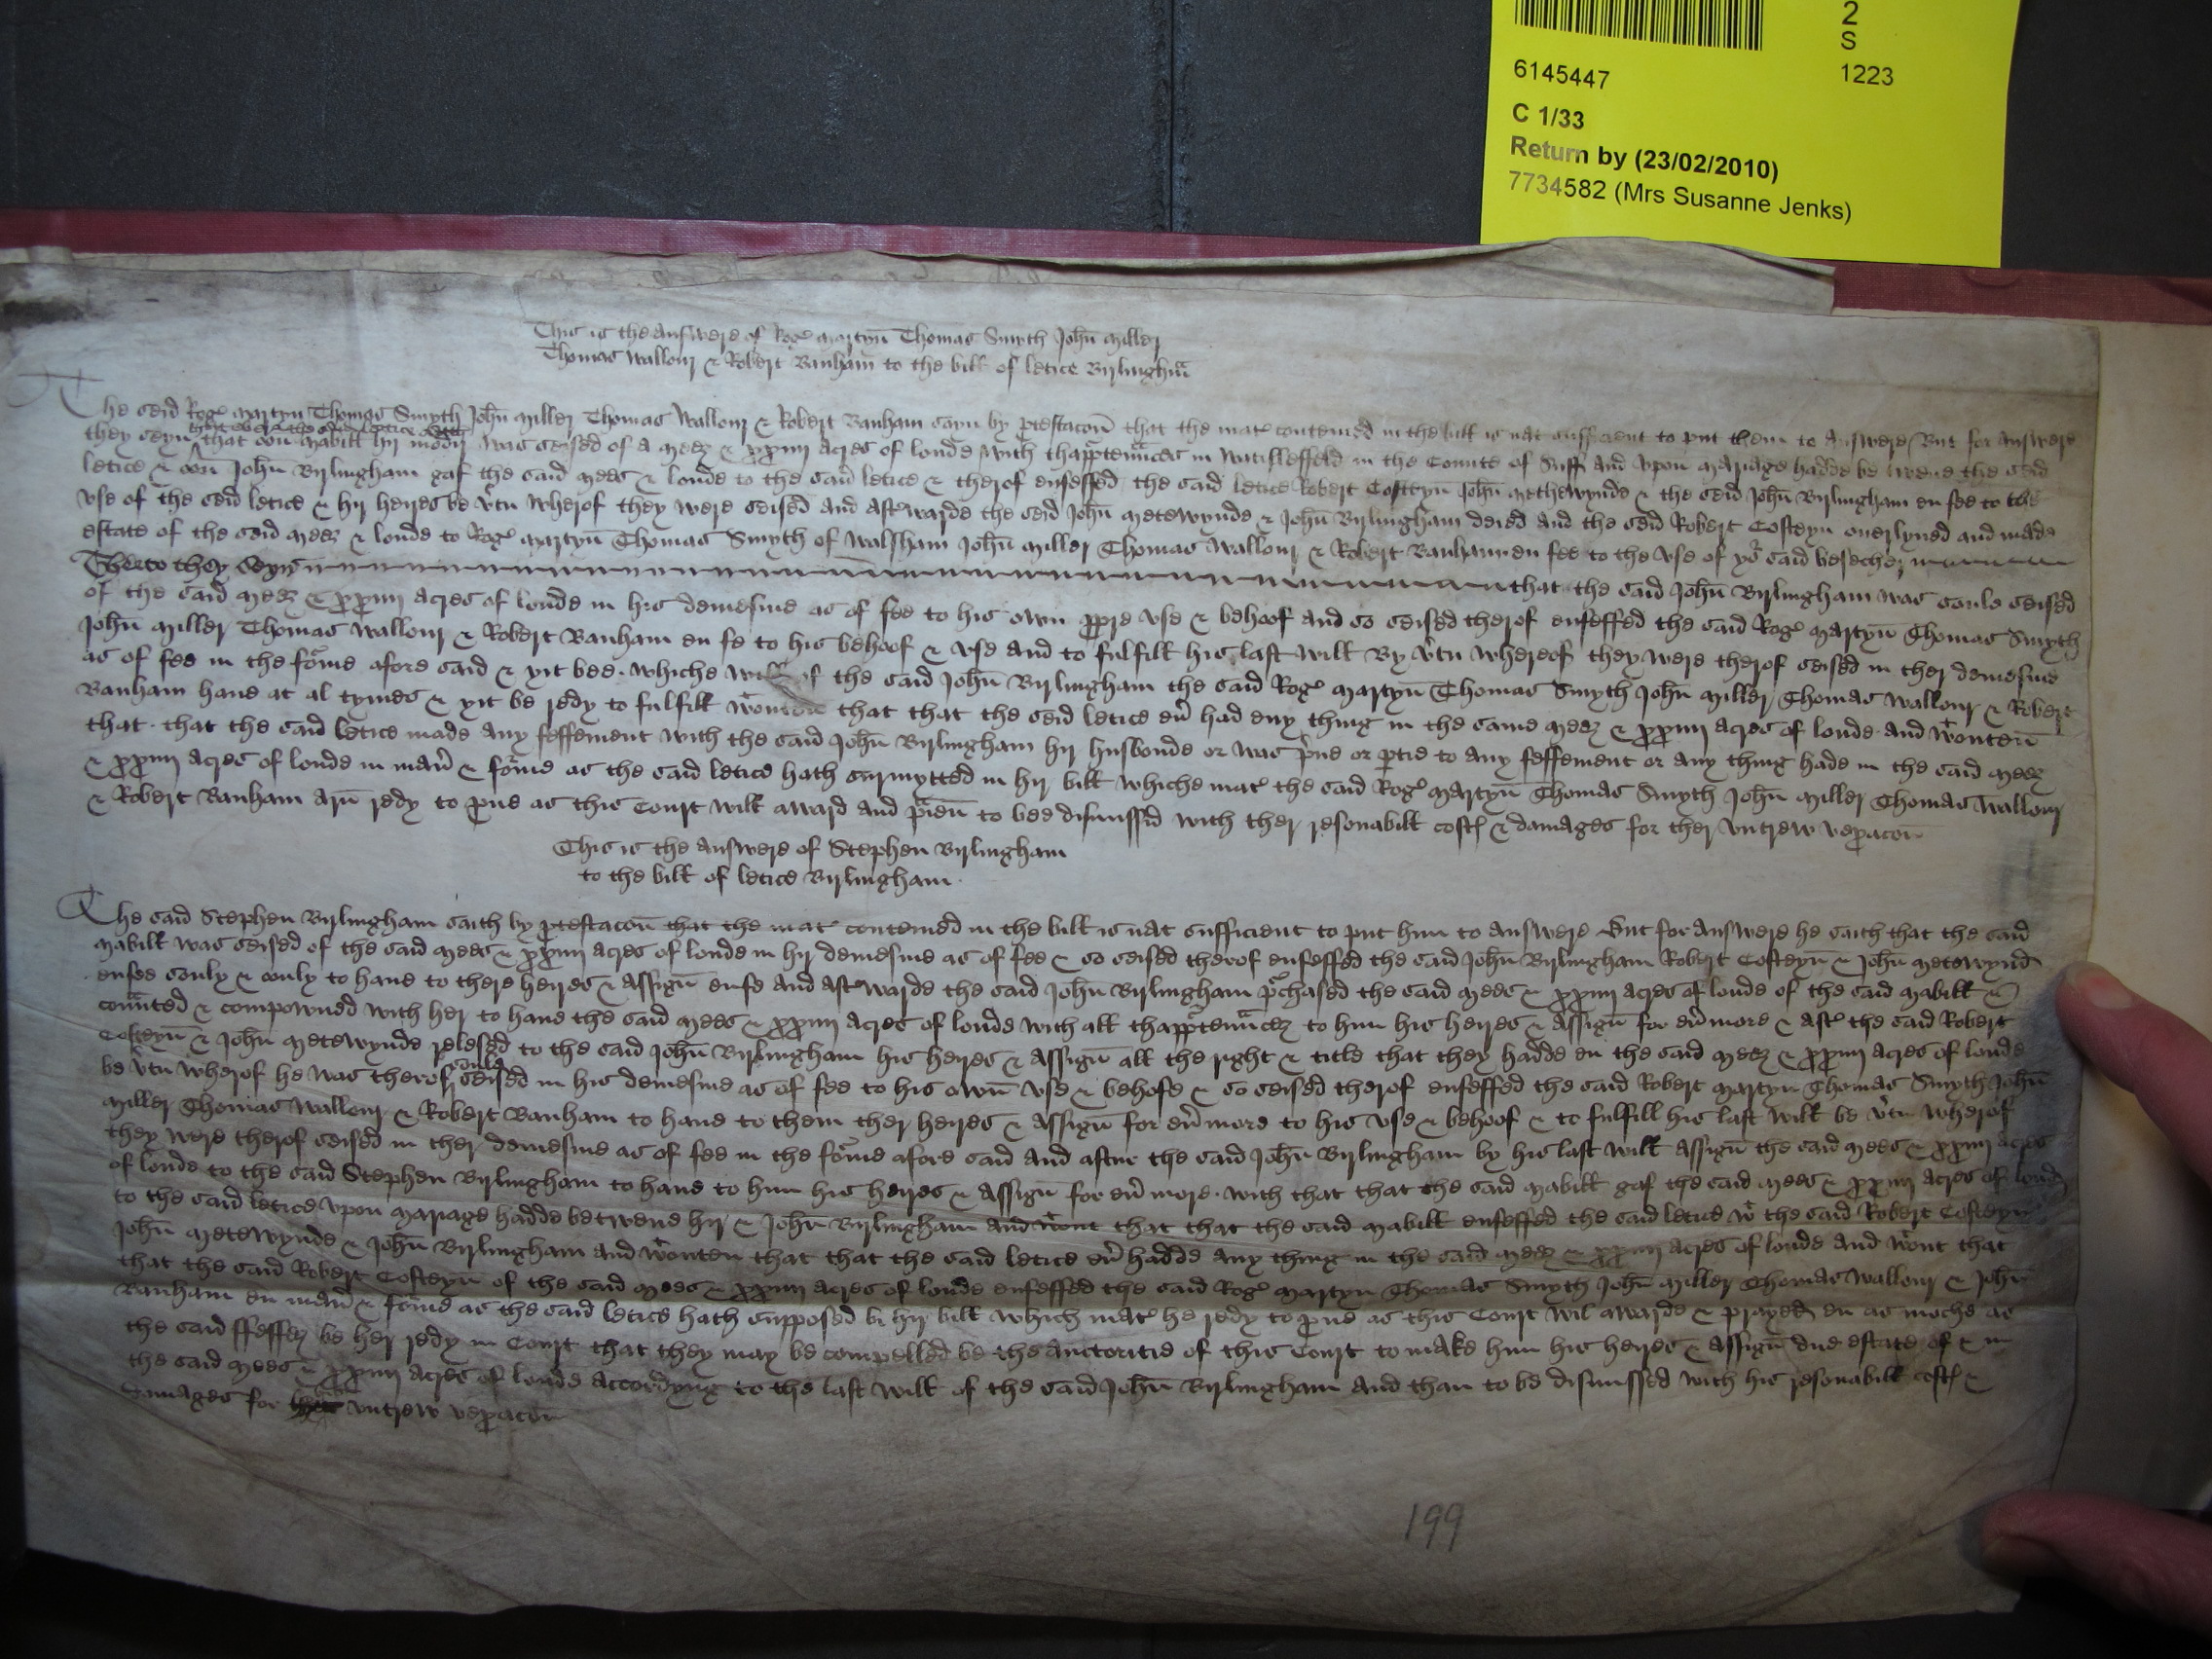 2
S
6145447 1223
C 1/33
Return by (23/02/2010)
7734582 (Mrs Susanne Jenks)
This is the answere of Rog' Martyn̄ Thomas Smyth Joh̄n Miller
Thomas Wallour & Robert Banham to the bill of Letice Birlingham̄
The seid Rog' Martyn Thomas Smyth Joh̄n Miller Thomas Wallour & Robert Banham sayn by ptestacōn that the mat' conteined in the bill is nat sufficient to put them to answere But for answere
they seyn that oon Mabill hir modir was seised of a mees & xxiiij acres of londe with thapptenaūces in Watlesfeld in the Counte of Suff and vpon mariage hadde be twene the seid
letice & oon Joh̄n Birlingham gaf the said mees & londe to the said letice & therof enfeffed the said letice Robert Costeyn Joh̄n Methewynde & the seid Joh̄n Birlingham en fee to the
vse of the seid letice & hir heires be v'tu wherof they were seised and aft'warde the seid Joh̄n Metewynde & Joh̄n Birlingham deied and the seid Robert Costeyn ouerlyued and made
estate of the seid mees & londe to Rog' Martyn̄ Thomas Smyth of Walsham Joh̄n Miller Thomas Wallour & Robert Banham en fee to the vse of yo'r said besecher
Therto they seyn that the said Joh̄n Birlingham was soule seised
of the said mees & xxiiij acres of londe in his demesne as of fee to his own ppre vse & behoof and so seised therof enfeffed the said Rog' Martyn̄ Thomas Smyth
Joh̄n Miller Thomas Wallour & Robert Banham en fe to his behoof & vse and to fulfill his last will By v'tu whereof they were therof seised in ther demesne
as of fee in the fo'me afore said & yit bee. whiche will of the said Joh̄n Birlingham the said Rog' Martyn̄ Thomas Smyth Joh̄n Miller Thomas Wallour & Robert
Banham haue at al tymes & yit be redy to fulfill w'outen that that the seid letice eu' had eny thing in the same mees & xxiiij acres of londe and w'outen̄
that. that the said letice made any feffement with the said Joh̄n Birlingham hir husbonde or was p'ue or ptie to any feffement or any thing hade in the said mees
& xxiiij acres of londe in man' & fo'me as the said letice hath surmytted in hir bill whiche mat' the said Rog' Martyn̄ Thomas Smyth Joh̄n Miller Thomas Wallour
& Robert Banham arn̄ redy to pue as this Court will award and p'ien̄ to bee dismissid with ther resonabill cost' & damages for ther vntrew vexacōn
This is the answere of Stephen Birlingham
to the bill of letice Birlingham.
The said Stephen Birlingham saith by ptestacōn that the mat' conteined in the bill is nat sufficient to put him to answere But for answere he saith that the said
Mabill was seised of the said mees & xxiiij acres of londe in hir demesne as of fee & so seised therof enfeffed the said Joh̄n Birlingham Robert Costeyn & Joh̄n Metewynd
enfee souly & only to haue to there heires & assign̄ enfe and aft'warde the said Joh̄n Birlingham p'chased the said mees & xxiiij acres of londe of the said Mabill &
cou'nted & compowned with her to haue the said mees & xxiiij acres of londe with all thapptenaūcez to him his heires & assign̄ for eu'more & aft' the said Robert
Costeyn̄ & Joh̄n Metewynde relesed to the said Joh̄n Birlingham his heires & assign̄ all the right & title that they hadde en the said mees & xxiiij acres of londe
be v'tu wherof he was therof soule seised in his demesne as of fee to his own̄ vse & behofe & so seised therof enfeffed the said Robert Martyn Thomas Smyth Joh̄n
Miller Thomas Wallour & Robert Banham to haue to them ther heires & assign̄ for eu'more to his vse & behoof & to fulfill his last will be v'tu wherof
they were therof seised in ther demesne as of fee in the fo'me afore said and aftur the said Joh̄n Birlingham by his last will assign̄ the said mees & xxiiij acres
of londe to the said Stephen Birlingham to haue to him his heires & assign̄ for eu'more. with that that the said Mabill gaf the said mees & xxiiij acres of londe
to the said letice vpon mariage hadde betwene hir & Joh̄n Birlingham and w'out that that the said Mabill enfeffed the said letice w' the said Robert Costeyn
Joh̄n Metewynde & Joh̄n Birlingham and w'outen that that the said letice eu' hadde any thing in the said mees & xxiiij acres of londe and w'out that
that the said Robert Costeyn̄ of the said mees & xxiiij acres of londe enfeffed the said Rog' Martyn Thomas Smyth Joh̄n Miller Thomas Wallour & Joh̄n
Banham en man' & fo'me as the said letice hath supposed bi hir bill which mat' he redy to pue as this Court wil awarde & prayed en as moche as
the said ffeffez be her redy in Court that they may be compelled be the auctoritie of this Court to make him his heires & assign̄ due estate of & in
the said mees & xxiiij acres of londe accordyng to the last will of the said Joh̄n Birlingham and than to be dismissed with his resonabill cost' &
damages for vntrew vexacōn
199